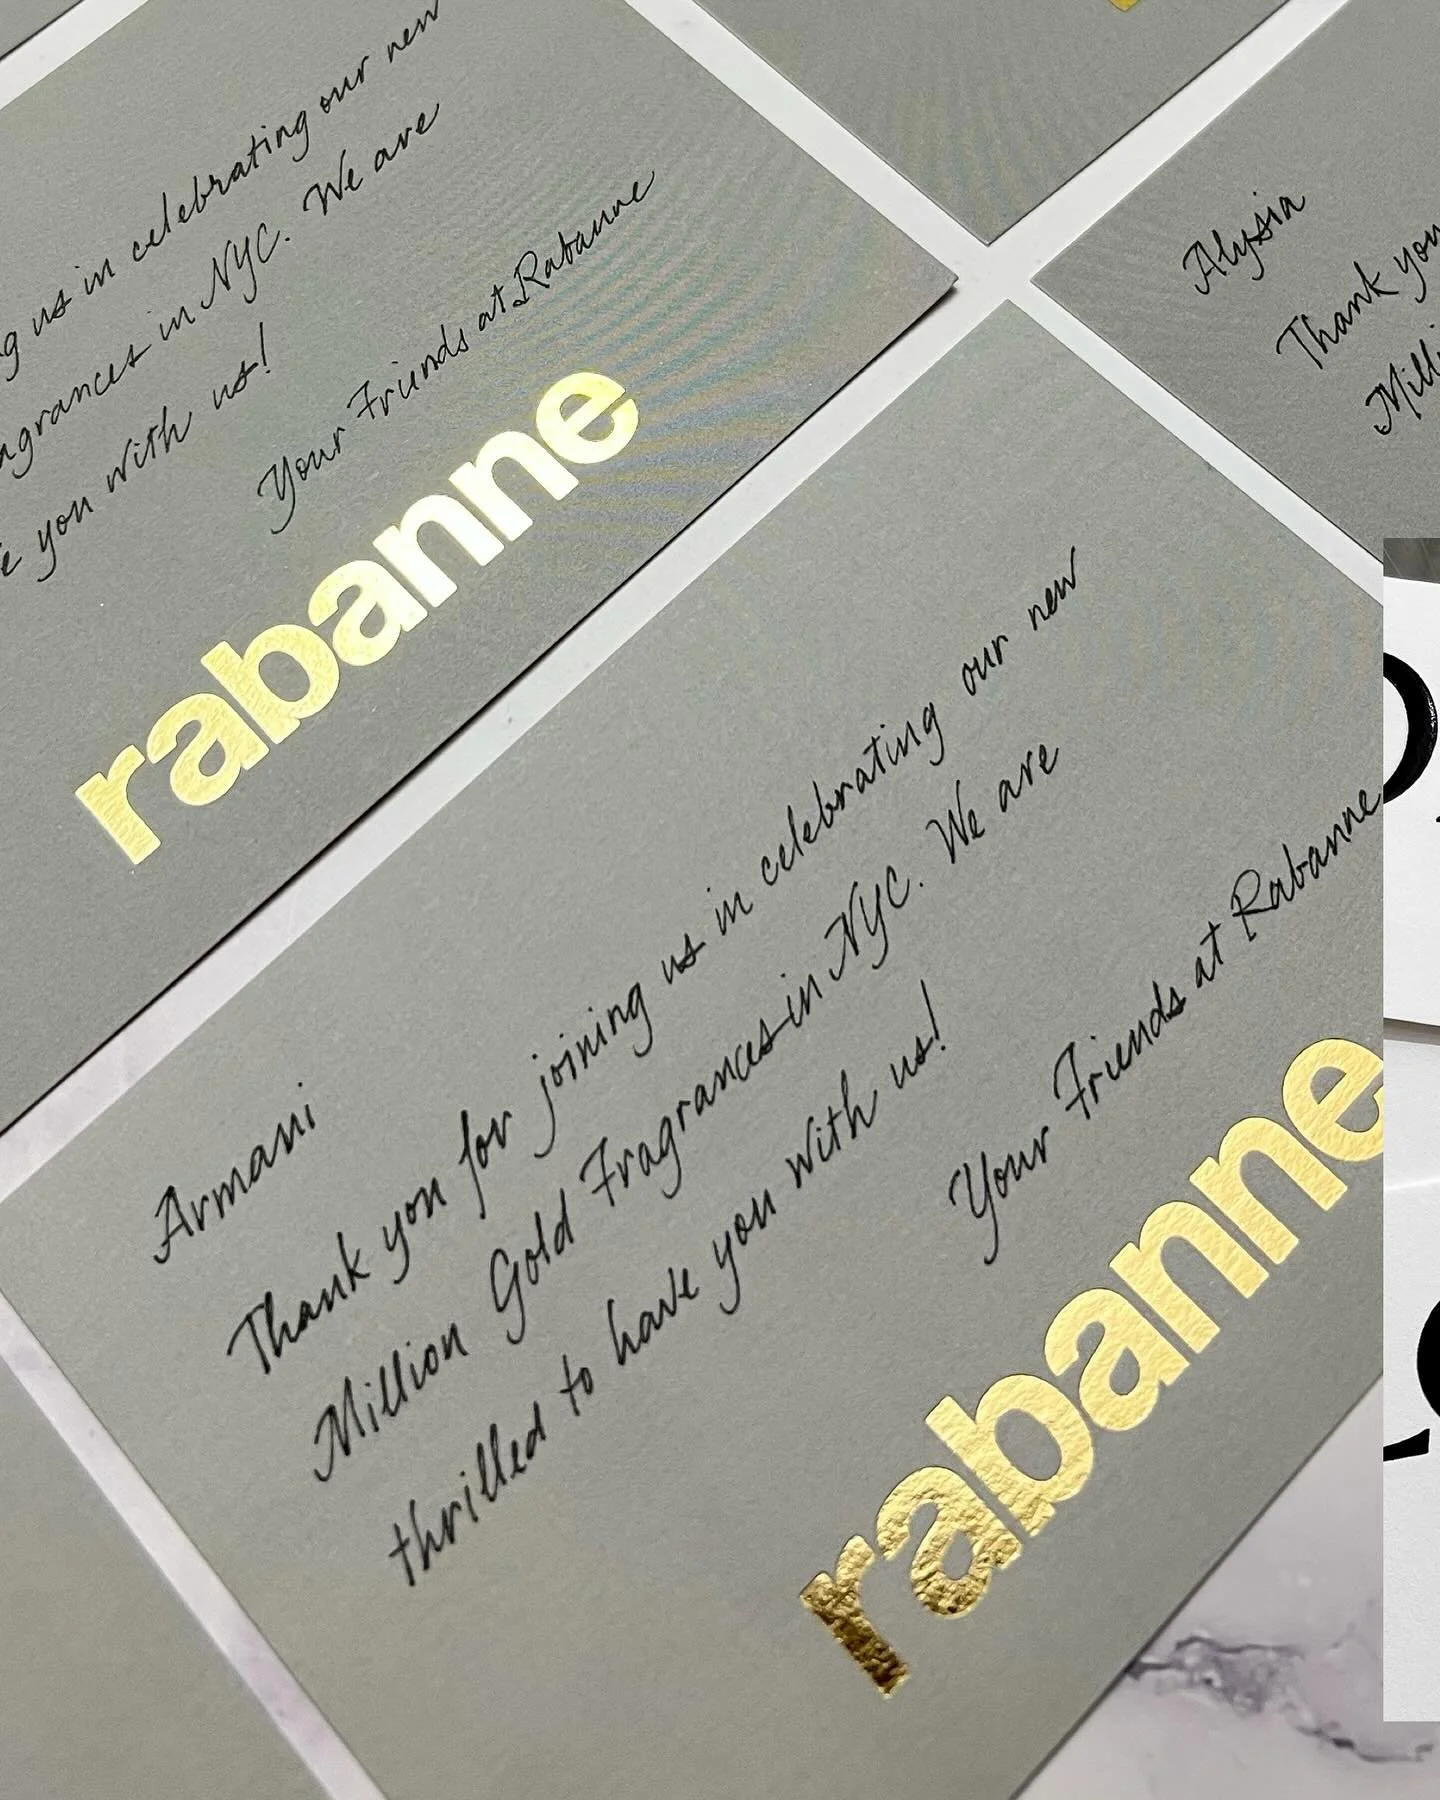 us in celebrating our new
in NYC. We are
you with us!
Your Friends at Rabanne
rabanne
Alysia
Thank you
Armani
Thank you for joining us in celebrating our new
Million Gold Fragrances in NYC. We are
thrilled to have you with us!
Your Friends at Rabanne
rabanne